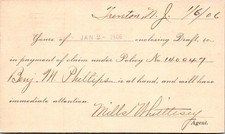 Trenton N.J. 1/6/06
Yours of JAN 3- 1906 enclosing Draft, &c.
in payment of claim under Policy No. 140047
Benj. M. Phillips is at hand, and will have
immediate attention.
Mills Whittlesey
Agent.